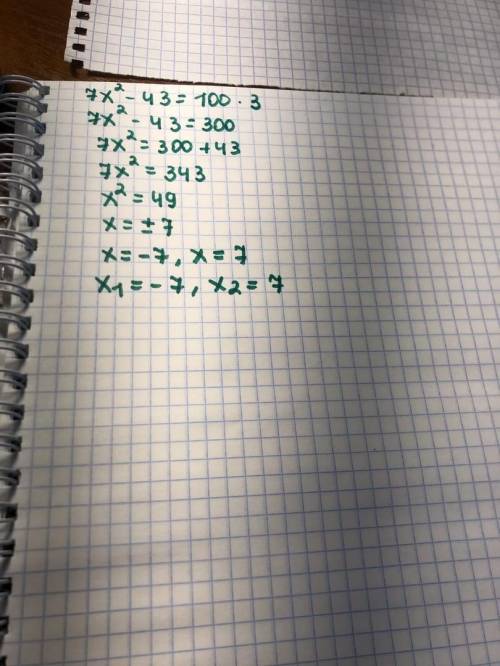 7x² - 43 = 100 · 3
7x² - 43 = 300
7x² = 300 + 43
7x² = 343
x² = 49
x = ±7
x = -7, x = 7
x₁ = -7, x₂ = 7